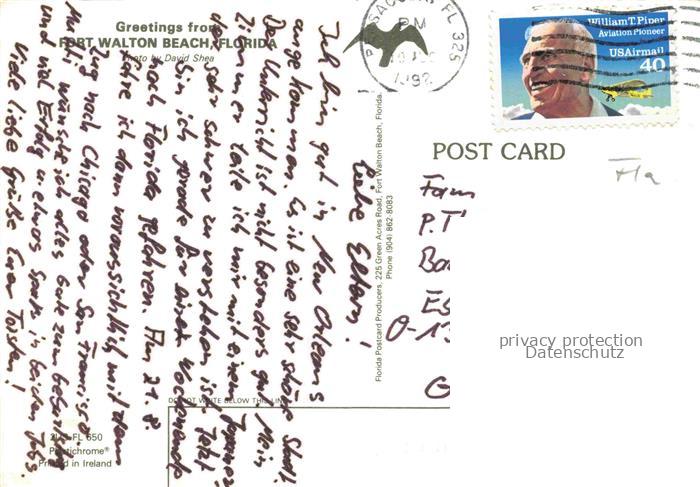 Greetings from
FORT WALTON BEACH, FLORIDA
Photo by David Shea
Liebe Eltern!
Ich bin gut in New Orleans
angekommen. Es ist eine sehr schöne Stadt.
Der Unterricht ist nicht besonders gut. Mein
Zimmer teile ich mir mit einem Japaner
der sehr schwer zu verstehen ist. Jetzt
bin ich gerade für dieses Wochenende
nach Florida gefahren. Am 21.8.
fahre ich dann voraussichtlich mit dem
Zug nach Chicago oder San Francisco.
Mutti wünsche ich alles Gute zum
und viel Erfolg u. etwas Spass in beiden Jobs.
Viele liebe Grüße Euer Torsten!
2US FL 650
Plastichrome®
Printed in Ireland
Florida Postcard Producers, 225 Green Acres Road, Fort Walton Beach, Florida.
Phone (904) 862-8083
DO NOT WRITE BELOW THIS LINE
PENSACOLA, FL 325
PM
1992
William T. Piper
Aviation Pioneer
USAirmail
40
POST CARD
Fla
Fam
P.T
O-13
privacy protection
Datenschutz